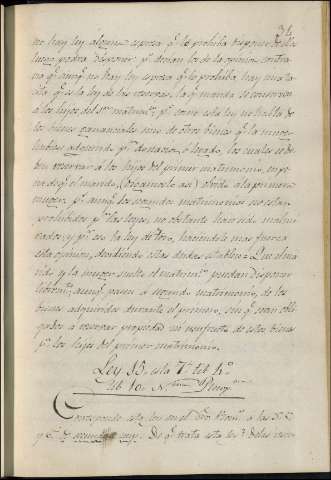 34
no hay ley alguna espresa q.e lo prohiba disponer de ellos
luego podrá disponer: p.o decian los de la opinion contra-
ria q.e aunq.e no hay ley espresa q.e lo prohiba, hay una ta-
cita q.e es la ley de las reservas, la q.e manda se reserven
a los hijos del 1.er matrim.o; p.o como esta ley no habla de
los bienes gananciales sino de otros bienes q.e la muger
hubiese adquirido p.r donacion, o legado, los cuales se de-
ben reservar á los hijos del primer matrimonio, su-
poniendo q.e el marido, (digamoslo asi) olvida a la primera
muger; p.s aunq.e los segundos matrimonios no estan
prohibidos p.r las leyes, no obstante han sido mal mi-
rados; y p.r eso la ley de Toro, haciendole mas fuerza
esta opinion, decidiendo estas dudas establece: Que el ma-
rido y la muger suelto el matrim.o puedan disponer
librem.te aunq.e pasen á segundo matrimonio, de los
bienes adquiridos durante el primero, sin q.e sean obli-
gados a reservar propiedad ni usufructo de estos bienes
p.a los hijos del primer matrimonio.
Ley 15. es la 7.a tit 4.o
lib 10.
Corresponde esta ley en el
De q.e trata esta ley?